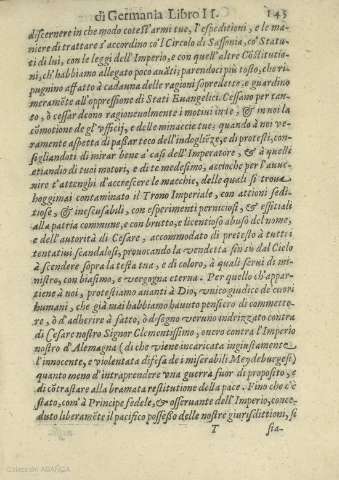 di Germania Libro II. 145
discernere in che modo cotest'armi tue, l'espeditioni, e le ma-
niere di trattare s'accordino cō'l Circolo di Sassonia, co' Statu-
ti di lui, con le leggi dell'Imperio, e con quell'altre Cōstitutio-
ni, ch'habbiamo allegato poco auāti; parendoci più tosto, che ri-
pugnino affatto à cadauna delle ragioni sopredette, e guardino
meramēte all'oppressione di Stati Euangelici. Cessano per tan-
to, ò cessar deono ragioneuolmente i motiui in te, & in noi la
cōmotione de gl'vfficij, e delle minaccie tue; quando à noi ve-
ramente aspetta di passar teco dell'indoglieze, e di protesti, con-
sigliandoti di mirar bene a' casi dell'Imperatore, & à quelli
etiandio di tuoi motori, e di te medesimo, accioche per l'auue-
nire t'attēghi d'accrescere le macchie, delle quali si troua
hoggimai contaminato il Trono Imperiale, con attioni sedi-
tiose, & inescusabili, con esperimenti perniciosi, & essitiali
alla patria commune, e con brutto, e licentioso abuso del nome,
e dell'autorità di Cesare, accommodato di pretesto à tutti i
tentatiui scandalosi, prouocando la vendetta sin sù dal Cielo
à scendere sopra la testa tua, e di coloro, à quali serui di mi-
nistro, con biasimo, e vergogna eterna. Per quello ch'appar-
tiene à noi, protestiamo auanti à Dio, vnico giudice de' cuori
humani, che già mai habbiamo hauuto pensiero di commette-
re, ò d'adherire à fatto, ò disogno veruno indrizzato contra
di Cesare nostro Signor Clementissimo, ouero contra l'Imperio
nostro d'Alemagna (di che viene incaricata ingiustamente
l'innocente, e violentata difesa de i miserabili Meydeburgesi)
quanto meno d'intraprendere vna guerra fuor di proposito, e
di cōtrastare alla bramata restitutione della pace. Fino che c'è
stato, com'à Principe fedele, & osseruante dell'Imperio, conce-
duto liberamēte il pacifico possesso delle nostre giurisdittioni, si
T sia-